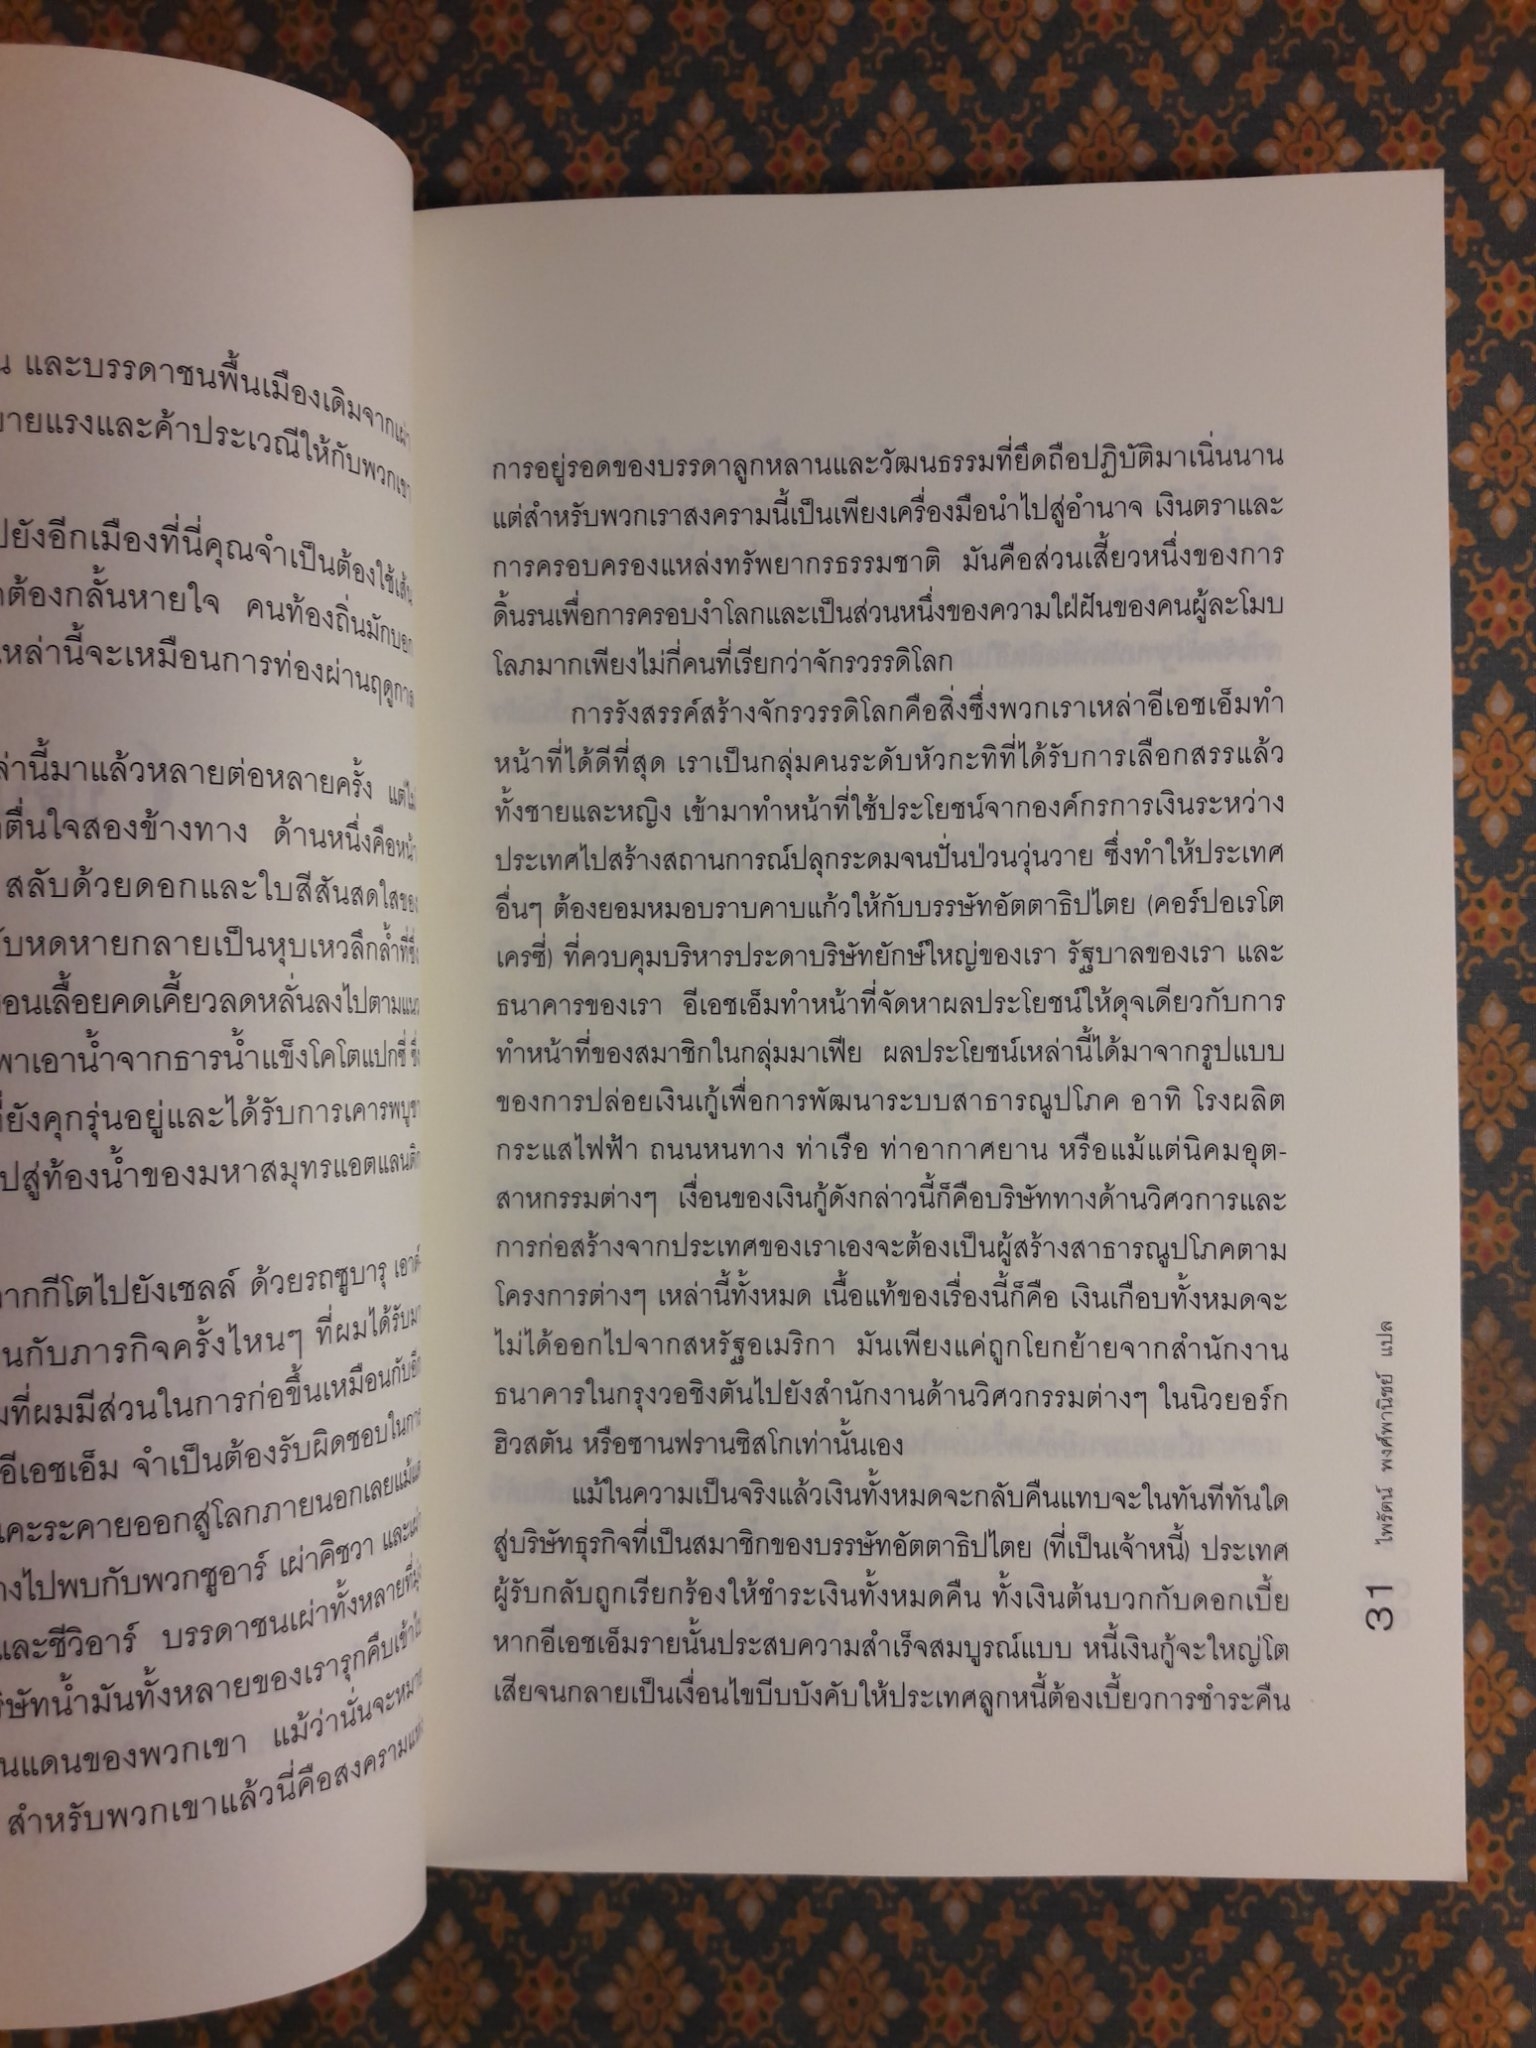 น และบรรดาชนพื้นเมืองเดิมจากเผ่า
ขายแรงและค้าประเวณีให้กับพวกเขา
ปยังอีกเมืองที่นี่คุณจำเป็นต้องใช้เส้น
ต้องกลั้นหายใจ คนท้องถิ่นมักบอก
เหล่านี้จะเหมือนการท่องผ่านฤดูกาล
ล่านี้มาแล้วหลายต่อหลายครั้ง แต่ไม่
ตื่นใจสองข้างทาง ด้านหนึ่งคือหน้า
สลับด้วยดอกและใบสีสันสดใสของ
บหดหายกลายเป็นหุบเหวลึกล้ำที่ซึ่ง
อนเลื้อยคดเคี้ยวลดหลั่นลงไปตามแนว
พาเอาน้ำจากธารน้ำแข็งโคโตแปกซี่ ซึ่ง
ที่ยังคุกรุ่นอยู่และได้รับการเคารพบูชา
ปสู่ท้องน้ำของมหาสมุทรแอตแลนติก
ากกีโตไปยังเชลล์ ด้วยรถซูบารุ เอาต์
นกับภารกิจครั้งไหนๆ ที่ผมได้รับมา
มที่ผมมีส่วนในการก่อขึ้นเหมือนกับอีก
อีเอชเอ็ม จำเป็นต้องรับผิดชอบในการ
แคะระคายออกสู่โลกภายนอกเลยแม้แต่
างไปพบกับพวกชูอาร์ เผ่าคิชวา และเผ่า
และชีวิอาร์ บรรดาชนเผ่าทั้งหลายที่มุ่ง
ริษัทน้ำมันทั้งหลายของเรารุกคืบเข้าไป
นแดนของพวกเขา แม้ว่านั่นจะหมาย
สำหรับพวกเขาแล้วนี่คือสงครามแห่ง
การอยู่รอดของบรรดาลูกหลานและวัฒนธรรมที่ยึดถือปฏิบัติมาเนิ่นนาน
แต่สำหรับพวกเราสงครามนี้เป็นเพียงเครื่องมือนำไปสู่อำนาจ เงินตราและ
การครอบครองแหล่งทรัพยากรธรรมชาติ มันคือส่วนเสี้ยวหนึ่งของการ
ดิ้นรนเพื่อการครอบงำโลกและเป็นส่วนหนึ่งของความใฝ่ฝันของคนผู้ละโมบ
โลภมากเพียงไม่กี่คนที่เรียกว่าจักรวรรดิโลก
การรังสรรค์สร้างจักรวรรดิโลกคือสิ่งซึ่งพวกเราเหล่าอีเอชเอ็มทำ
หน้าที่ได้ดีที่สุด เราเป็นกลุ่มคนระดับหัวกะทิที่ได้รับการเลือกสรรแล้ว
ทั้งชายและหญิง เข้ามาทำหน้าที่ใช้ประโยชน์จากองค์กรการเงินระหว่าง
ประเทศไปสร้างสถานการณ์ปลุกระดมจนปั่นป่วนวุ่นวาย ซึ่งทำให้ประเทศ
อื่นๆ ต้องยอมหมอบราบคาบแก้วให้กับบรรษัทอัตตาธิปไตย (คอร์ปอเรโต
เครซี่) ที่ควบคุมบริหารประดาบริษัทยักษ์ใหญ่ของเรา รัฐบาลของเรา และ
ธนาคารของเรา อีเอชเอ็มทำหน้าที่จัดหาผลประโยชน์ให้ดุจเดียวกับการ
ทำหน้าที่ของสมาชิกในกลุ่มมาเฟีย ผลประโยชน์เหล่านี้ได้มาจากรูปแบบ
ของการปล่อยเงินกู้เพื่อการพัฒนาระบบสาธารณูปโภค อาทิ โรงผลิต
กระแสไฟฟ้า ถนนหนทาง ท่าเรือ ท่าอากาศยาน หรือแม้แต่นิคมอุต-
สาหกรรมต่างๆ เงื่อนของเงินกู้ดังกล่าวนี้ก็คือบริษัททางด้านวิศวการและ
การก่อสร้างจากประเทศของเราเองจะต้องเป็นผู้สร้างสาธารณูปโภคตาม
โครงการต่างๆ เหล่านี้ทั้งหมด เนื้อแท้ของเรื่องนี้ก็คือ เงินเกือบทั้งหมดจะ
ไม่ได้ออกไปจากสหรัฐอเมริกา มันเพียงแค่ถูกโยกย้ายจากสำนักงาน
ธนาคารในกรุงวอชิงตันไปยังสำนักงานด้านวิศวกรรมต่างๆ ในนิวยอร์ก
ฮิวสตัน หรือซานฟรานซิสโกเท่านั้นเอง
แม้ในความเป็นจริงแล้วเงินทั้งหมดจะกลับคืนแทบจะในทันทีทันใด
สู่บริษัทธุรกิจที่เป็นสมาชิกของบรรษัทอัตตาธิปไตย (ที่เป็นเจ้าหนี้) ประเทศ
ผู้รับกลับถูกเรียกร้องให้ชำระเงินทั้งหมดคืน ทั้งเงินต้นบวกกับดอกเบี้ย
หากอีเอชเอ็มรายนั้นประสบความสำเร็จสมบูรณ์แบบ หนี้เงินกู้จะใหญ่โต
เสียจนกลายเป็นเงื่อนไขบีบบังคับให้ประเทศลูกหนี้ต้องเบี้ยวการชำระคืน
31 ไพรัตน์ พงศ์พานิชย์ แปล